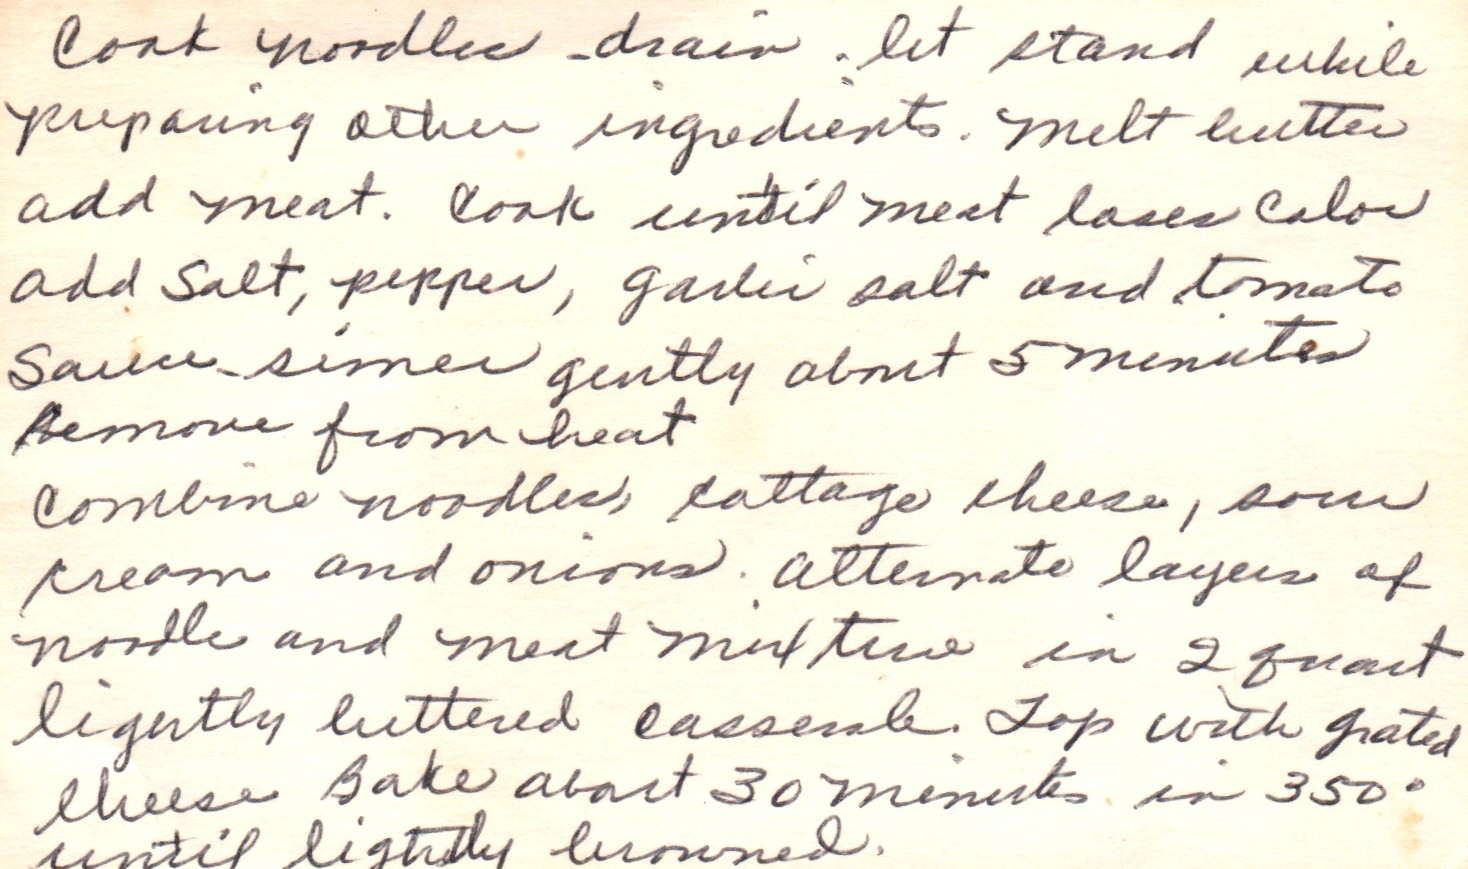 Cook noodles - drain. let stand while
preparing other ingredients. Melt butter
add meat. Cook until meat loses color
add salt, pepper, garlic salt and tomato
sauce - simer gently about 5 minutes
Remove from heat
Combine noodles, cottage cheese, sour
cream and onions. Alternate layers of
noodle and meat mixture in 2 quart
lightly buttered casserole. Top with grated
cheese Bake about 30 minutes in 350°
until lightly browned.